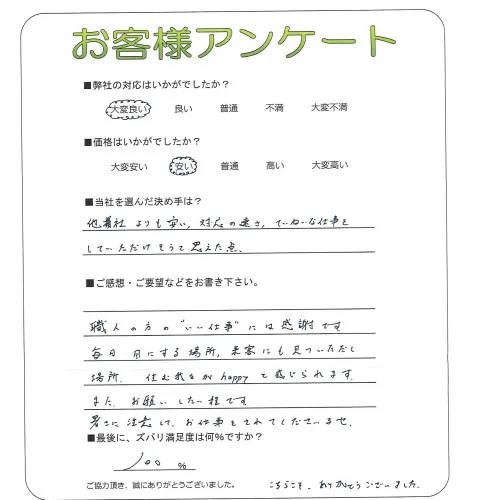 お客様アンケート
■弊社の対応はいかがでしたか？
大変良い 良い 普通 不満 大変不満
■価格はいかがでしたか？
大変安い 安い 普通 高い 大変高い
■当社を選んだ決め手は？
他業社よりも安い，対応の速さ，ていねいな仕事を
していただけそうと思えた点、
■ご感想・ご要望などをお書き下さい。
職人の方の"いい仕事"には感謝です
毎日 目にする場所，来客にも見ていただく
場所． 住む我々がhappyと感じられます．
また，お願いしたい程です
暑さに注意して，お仕事をされてくださいませ．
■最後に、ズバリ満足度は何%ですか？
100 %
ご協力頂き、誠にありがとうございました。
こちらこそ、ありがとうございました．